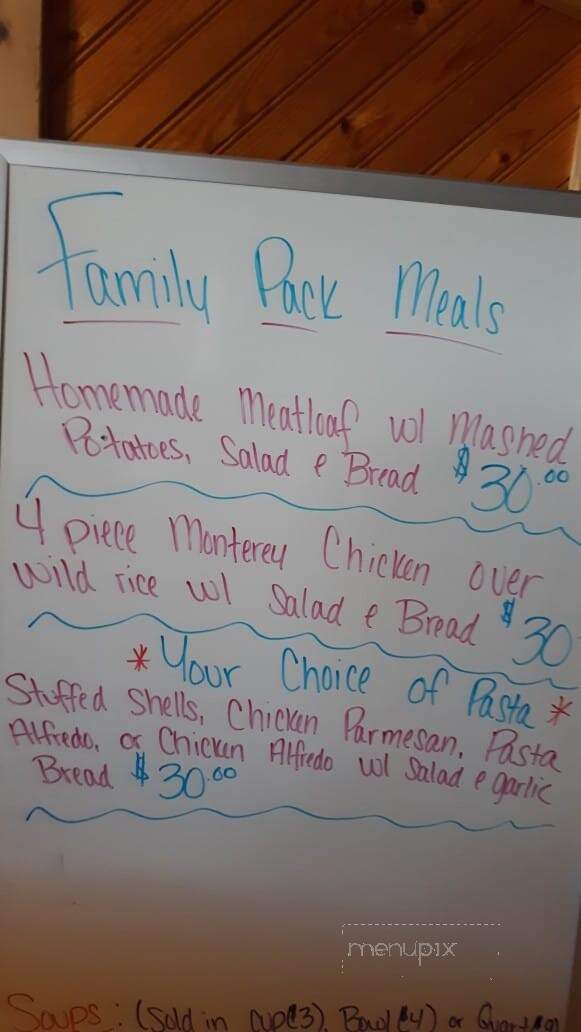 Family Pack Meals
Homemade Meatloaf w/ Mashed
Potatoes, Salad & Bread $30.00
4 piece Monterey Chicken over
wild rice w/ Salad & Bread $30
*Your Choice of Pasta*
Stuffed Shells, Chicken Parmesan, Pasta
Alfredo, or Chicken Alfredo w/ Salad & garlic
Bread $30.00
menupix
Soups: (Sold in cup($3), Bowl($4) or